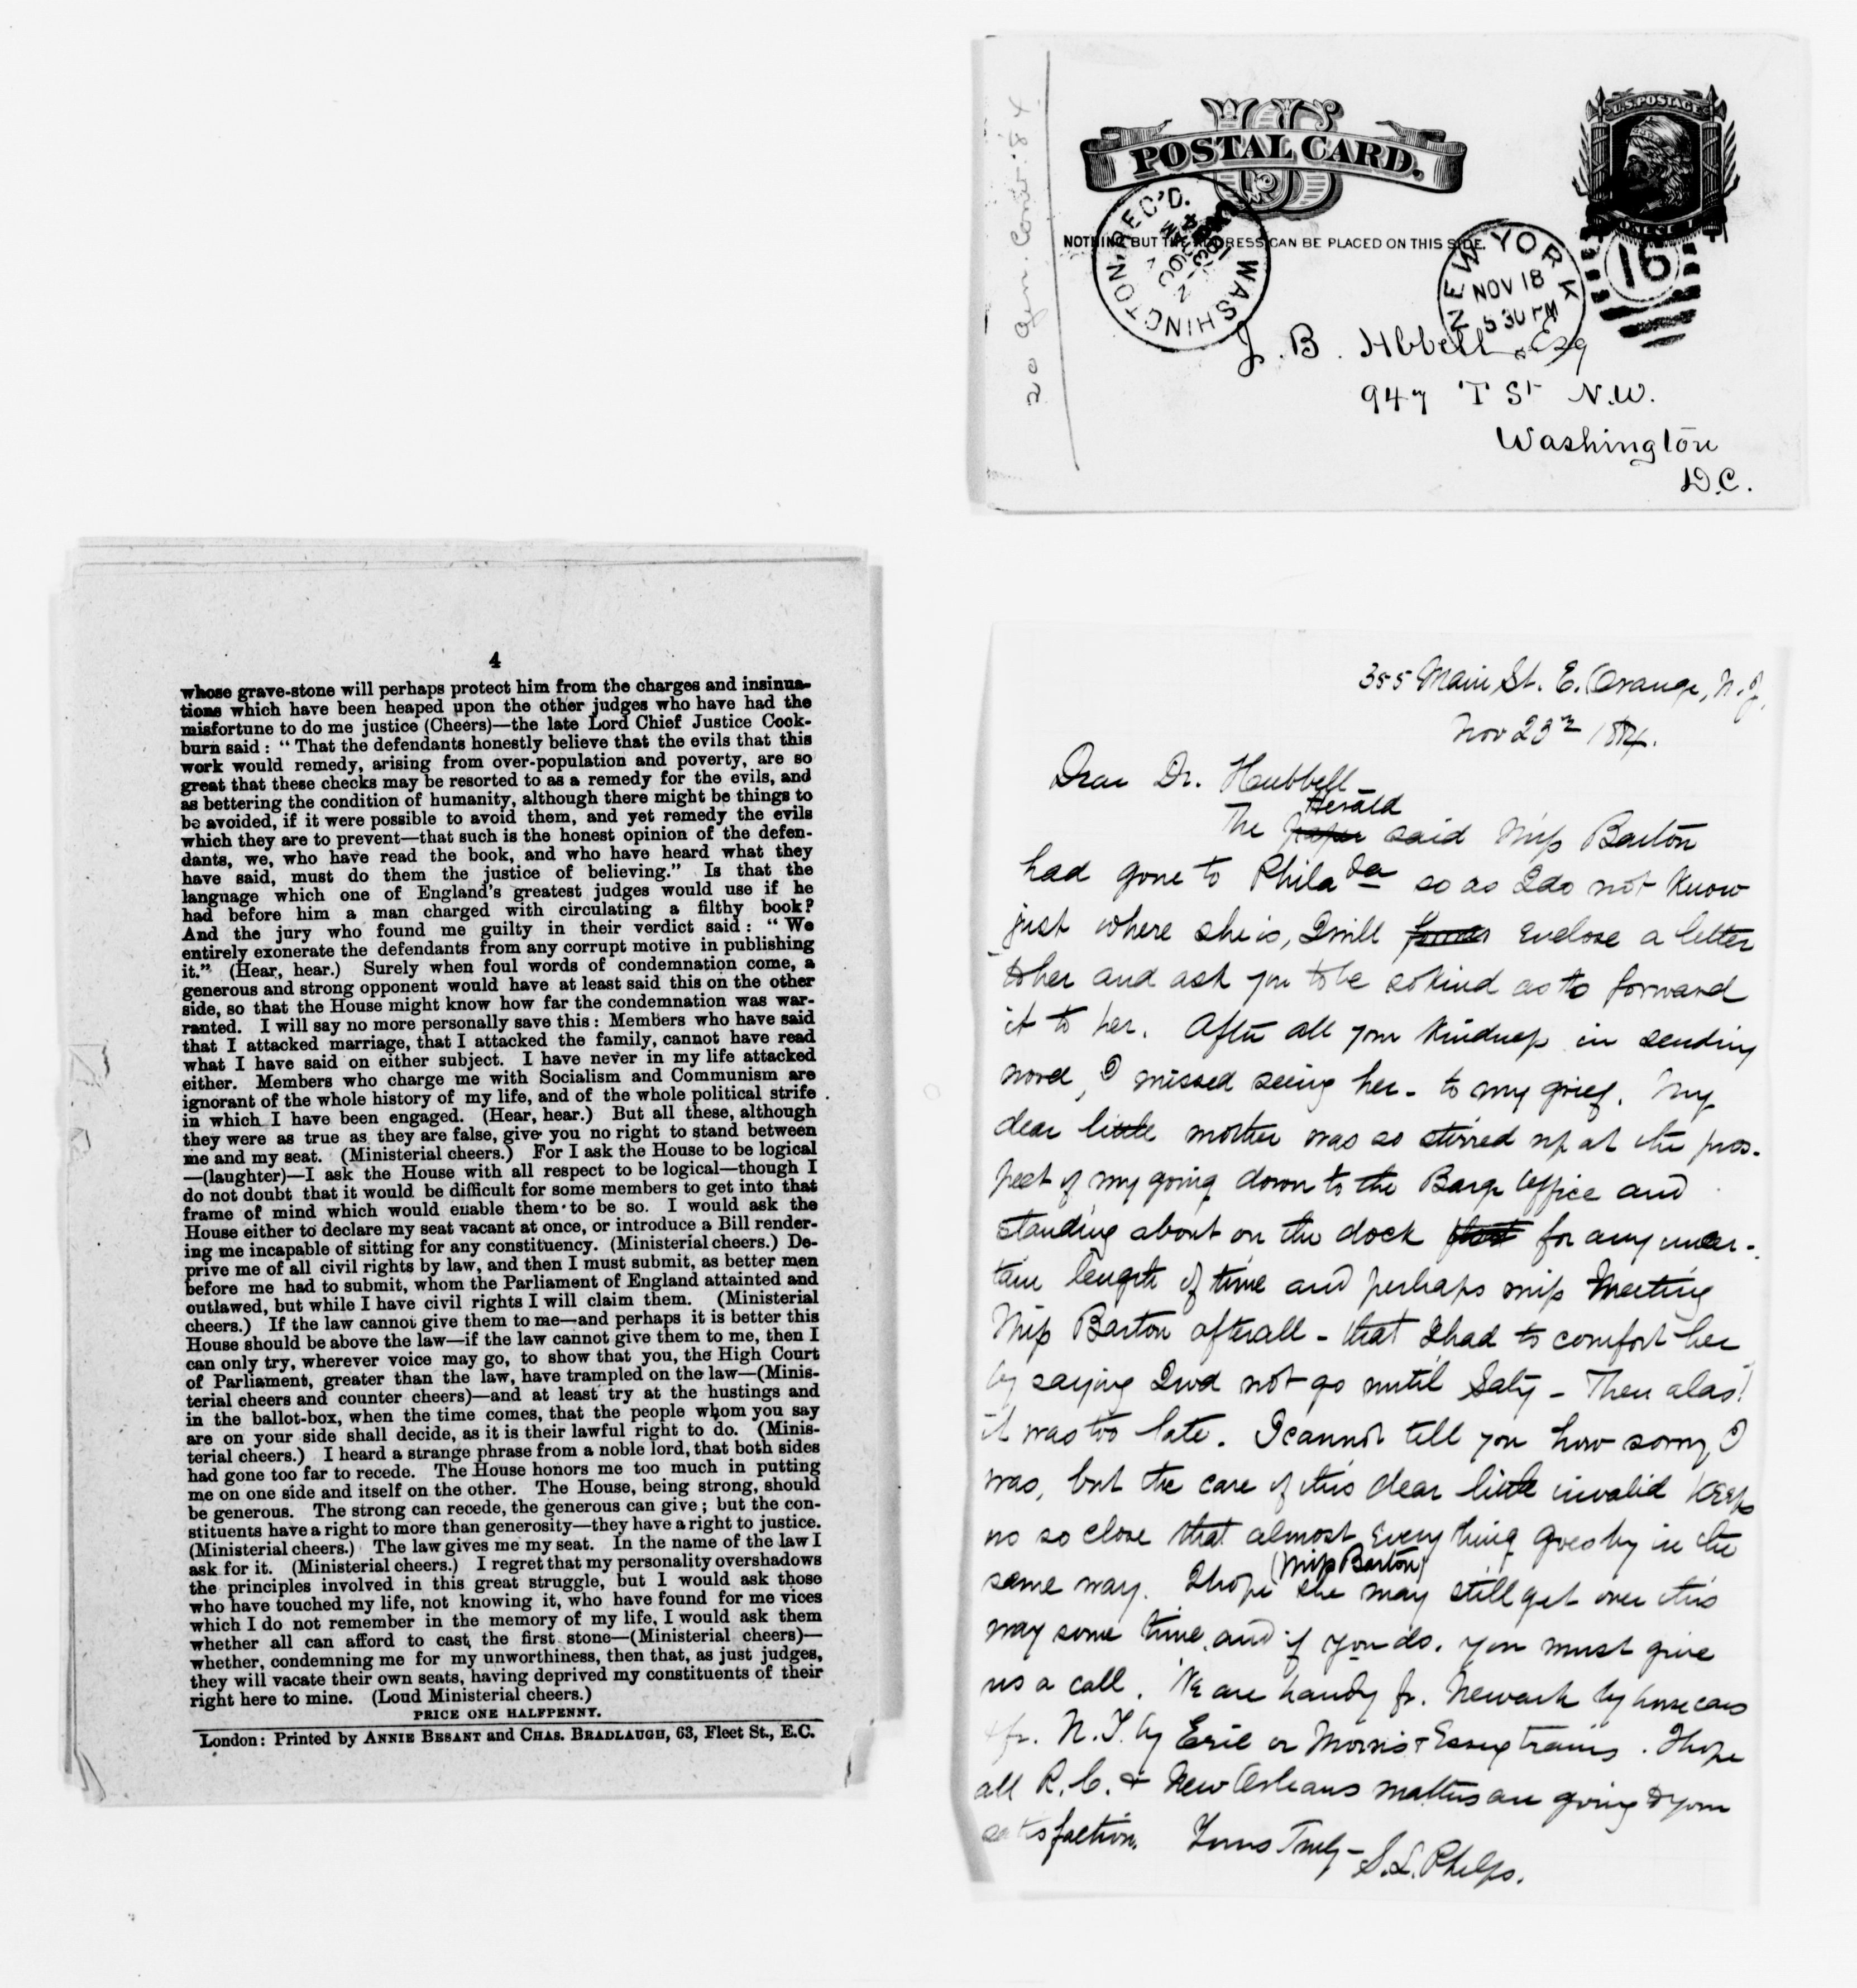 4
whose grave-stone will perhaps protect him from the charges and insinua-
tions which have been heaped upon the other judges who have had the
misfortune to do me justice (Cheers)—the late Lord Chief Justice Cock-
burn said: "That the defendants honestly believe that the evils that this
work would remedy, arising from over-population and poverty, are so
great that these checks may be resorted to as a remedy for the evils, and
as bettering the condition of humanity, although there might be things to
be avoided, if it were possible to avoid them, and yet remedy the evils
which they are to prevent—that such is the honest opinion of the defen-
dants, we, who have read the book, and who have heard what they
have said, must do them the justice of believing." Is that the
language which one of England's greatest judges would use if he
had before him a man charged with circulating a filthy book?
And the jury who found me guilty in their verdict said: "We
entirely exonerate the defendants from any corrupt motive in publishing
it." (Hear, hear.) Surely when foul words of condemnation come, a
generous and strong opponent would have at least said this on the other
side, so that the House might know how far the condemnation was war-
ranted. I will say no more personally save this: Members who have said
that I attacked marriage, that I attacked the family, cannot have read
what I have said on either subject. I have never in my life attacked
either. Members who charge me with Socialism and Communism are
ignorant of the whole history of my life, and of the whole political strife
in which I have been engaged. (Hear, hear.) But all these, although
they were as true as they are false, give you no right to stand between
me and my seat. (Ministerial cheers.) For I ask the House to be logical
—(laughter)—I ask the House with all respect to be logical—though I
do not doubt that it would be difficult for some members to get into that
frame of mind which would enable them to be so. I would ask the
House either to declare my seat vacant at once, or introduce a Bill render-
ing me incapable of sitting for any constituency. (Ministerial cheers.) De-
prive me of all civil rights by law, and then I must submit, as better men
before me had to submit, whom the Parliament of England attainted and
outlawed, but while I have civil rights I will claim them. (Ministerial
cheers.) If the law cannot give them to me—and perhaps it is better this
House should be above the law—if the law cannot give them to me, then I
can only try, wherever voice may go, to show that you, the High Court
of Parliament, greater than the law, have trampled on the law—(Minis-
terial cheers and counter cheers)—and at least try at the hustings and
in the ballot-box, when the time comes, that the people whom you say
are on your side shall decide, as it is their lawful right to do. (Minis-
terial cheers.) I heard a strange phrase from a noble lord, that both sides
had gone too far to recede. The House honors me too much in putting
me on one side and itself on the other. The House, being strong, should
be generous. The strong can recede, the generous can give; but the con-
stituents have a right to more than generosity—they have a right to justice.
(Ministerial cheers.) The law gives me my seat. In the name of the law I
ask for it. (Ministerial cheers.) I regret that my personality overshadows
the principles involved in this great struggle, but I would ask those
who have touched my life, not knowing it, who have found for me vices
which I do not remember in the memory of my life, I would ask them
whether all can afford to cast the first stone—(Ministerial cheers)—
whether, condemning me for my unworthiness, then that, as just judges,
they will vacate their own seats, having deprived my constituents of their
right here to mine. (Loud Ministerial cheers.)
PRICE ONE HALFPENNY.
London: Printed by ANNIE BESANT and CHAS. BRADLAUGH, 63, Fleet St., E.C.
US
POSTAL CARD.
U.S. POSTAGE
ONE CENT
NOTHING BUT THE ADDRESS CAN BE PLACED ON THIS SIDE.
WASHINGTON, REC'D.
NEW YORK
NOV 18
5 30 PM
16
J. B. Hbbell, Esq
947 T St N.W.
Washington
D.C.
355 Main St. E. Orange, N.J.
Nov 23rd 1884.
Dear Dr. Hubbell
Herald
The paper said Miss Barton
had gone to Phila da so as I do not know
just where she is, I will enclose a letter
to her and ask you to be so kind as to forward
it to her. After all your kindness in sending
word, I missed seeing her - to my grief. My
dear little mother was so stirred up at the pros-
pect of my going down to the Barge Office and
standing about on the dock for any uncer-
tain length of time and perhaps miss meeting
Miss Barton after all - that I had to comfort her
by saying I wd not go until Saty - Then alas!
it was too late. I cannot tell you how sorry I
was, but the care of this dear little invalid keeps
us so close that almost everything goes by in the
(Miss Barton)
same way. I hope she may still get over this
way some time and if you do, you must give
us a call. We are handy fr. Newark by horse cars
& fr. N.Y. by Erie or Morris & Essex trains. I hope
all R.C. & New Orleans matters are going to your
satisfaction. Yours Truly - S.L. Phelps.